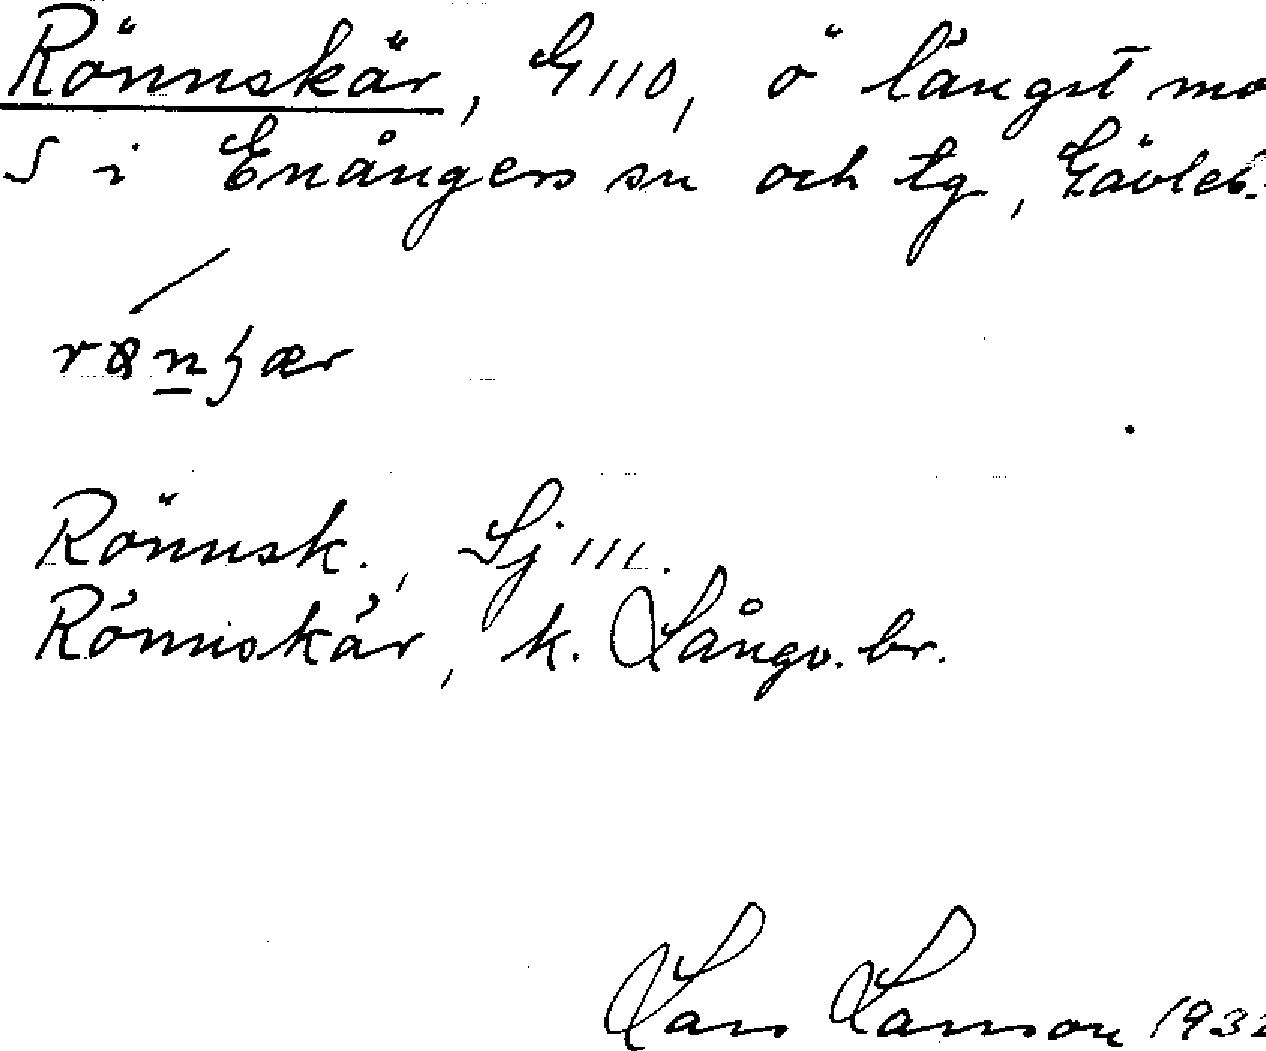 Rönnskär, G 110, ö längst mo
S i Enångers sn och tg, Gävleb.
Rönnsk., Sj 111.
Rönnskär, k. Långv. br.
Lars Larsson